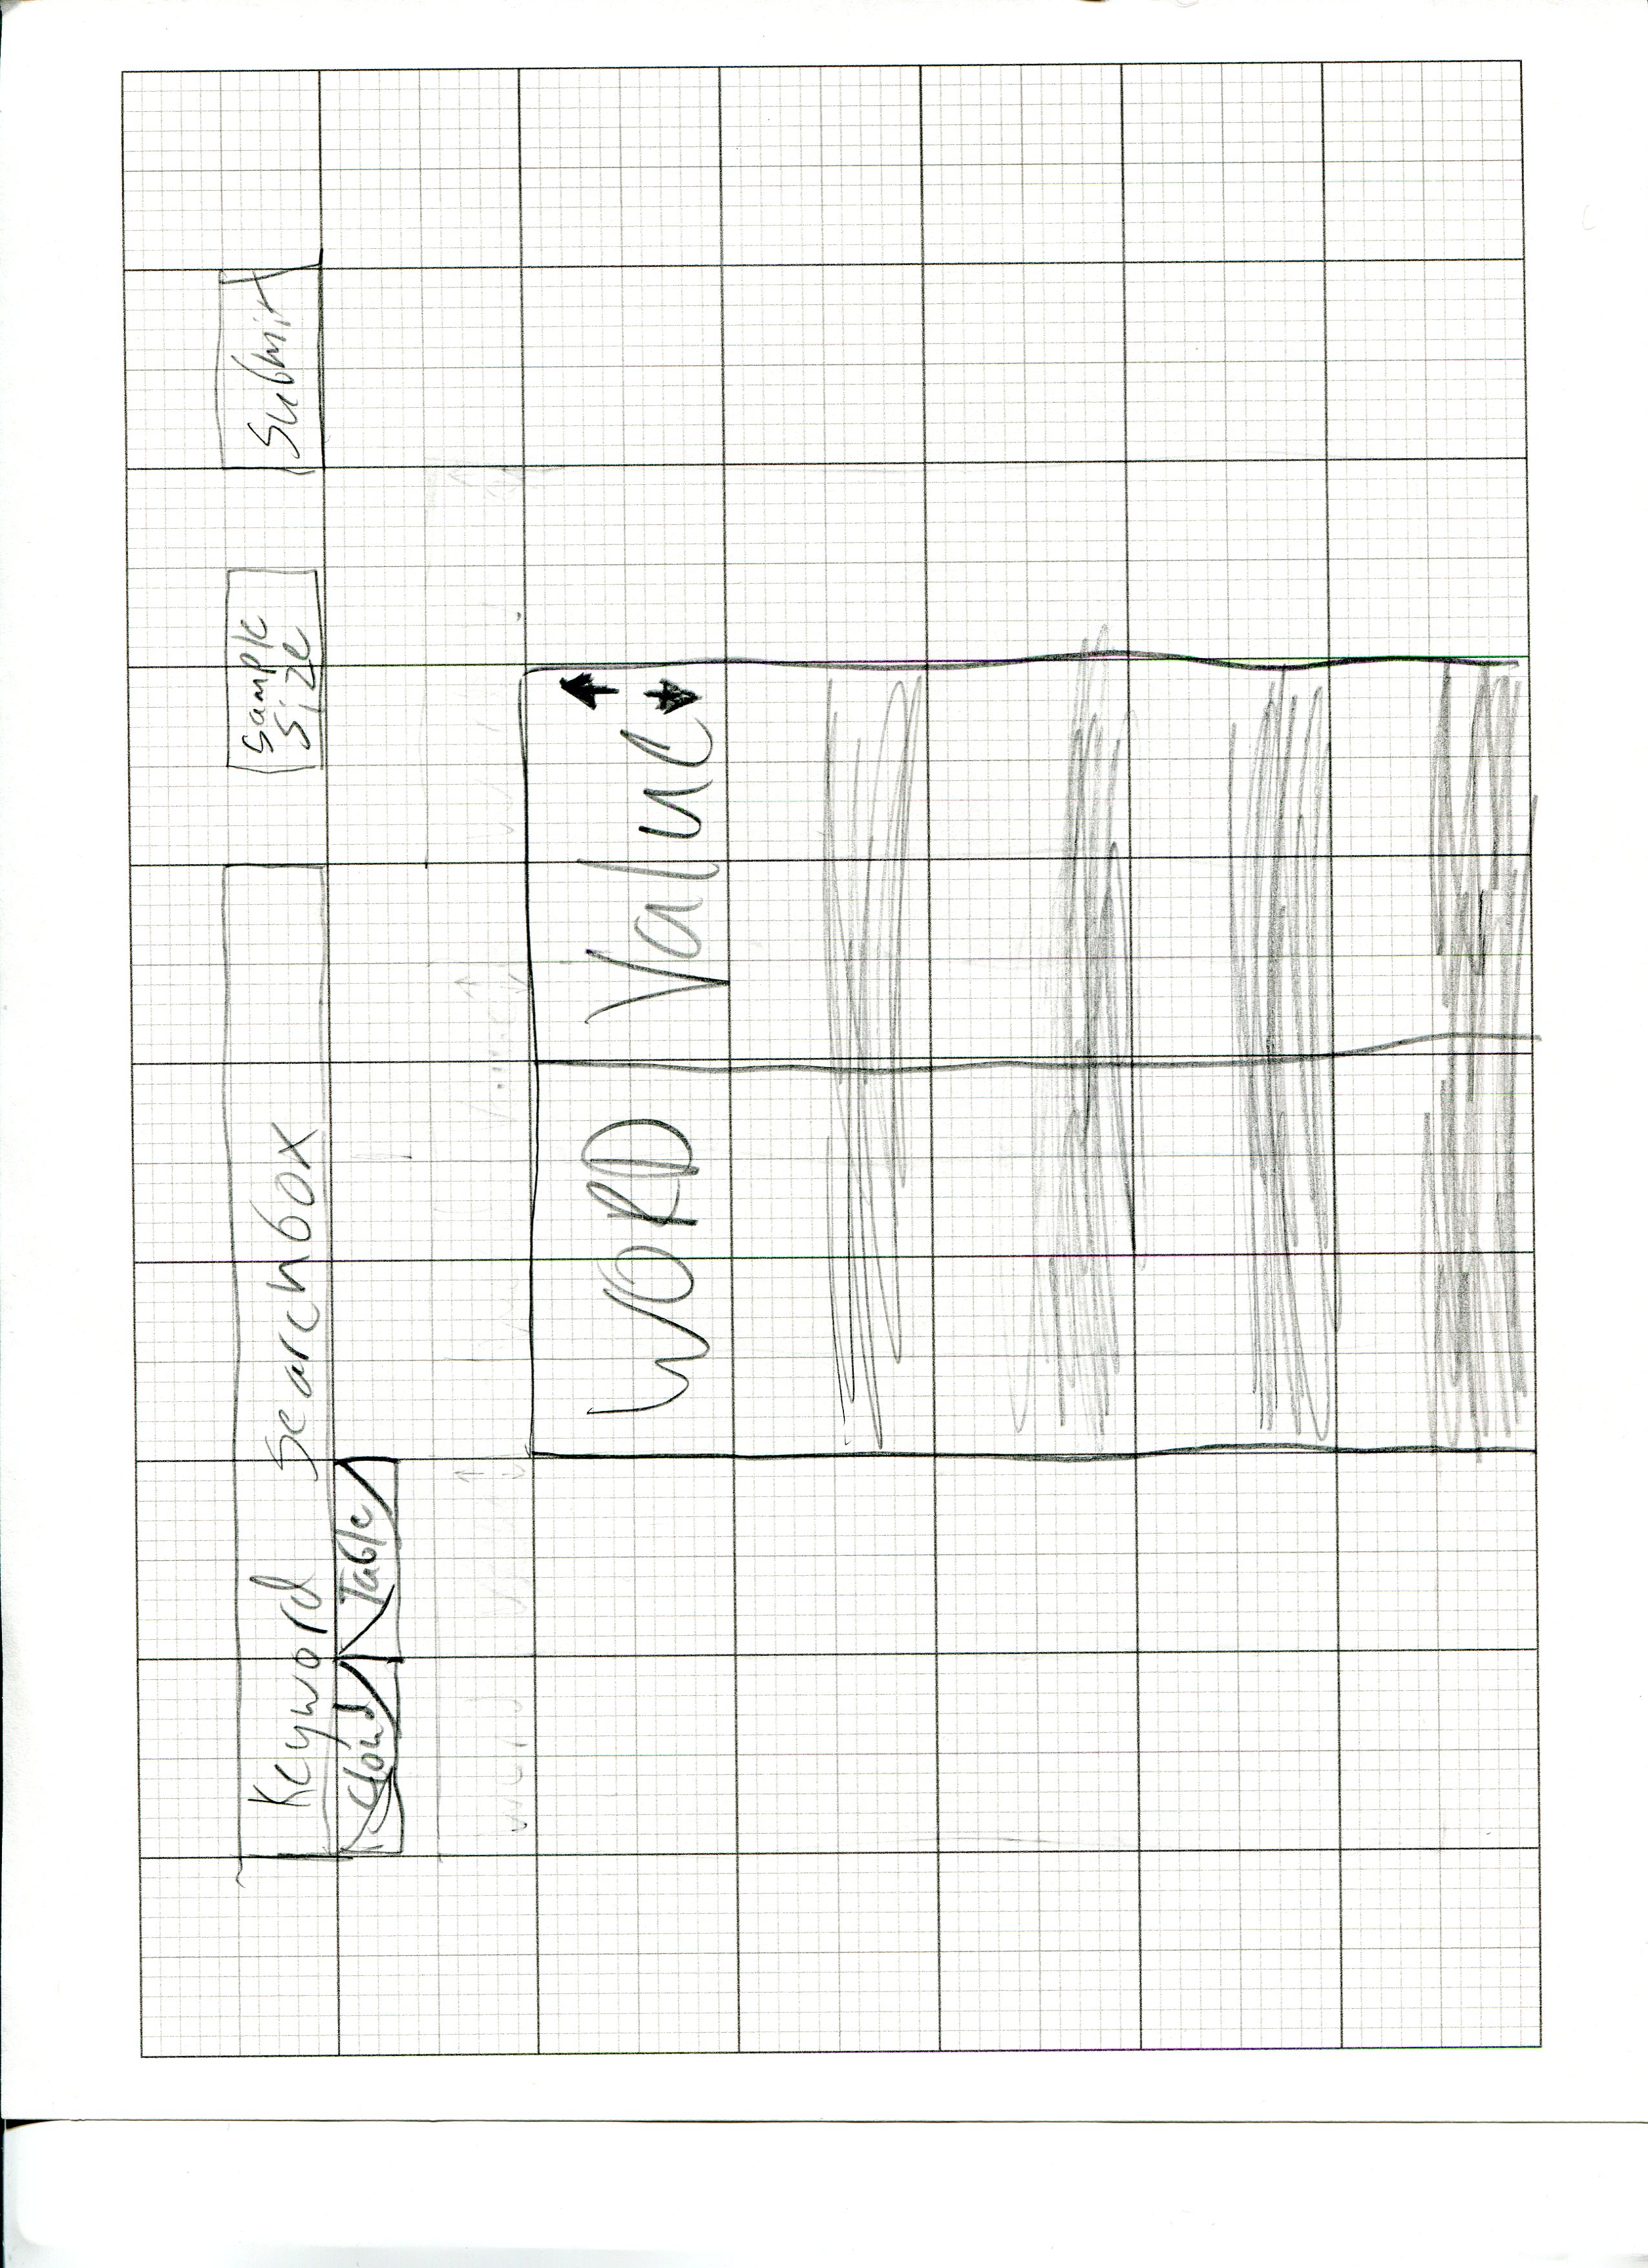 Keyword searchbox
sample
size
submit
Cloud Table
WORD Value